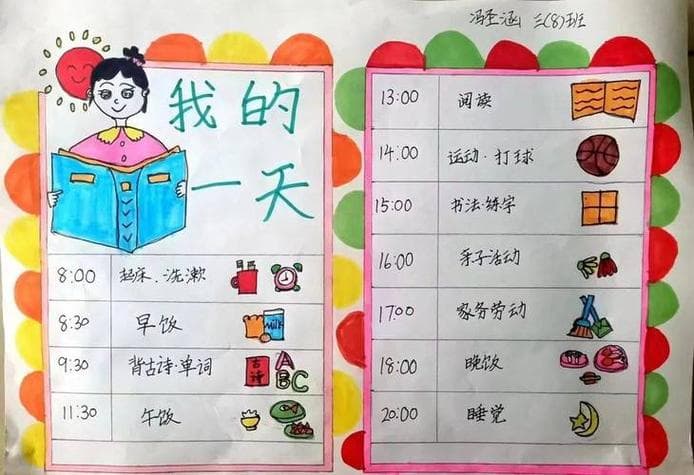 冯圣涵 三(8)班
我的
一天
8:00 起床、洗漱
8:30 早饭
milk
9:30 背古诗·单词
古诗
ABC
11:30 午饭
13:00 阅读
14:00 运动·打球
15:00 书法·练字
16:00 亲子活动
17:00 家务劳动
18:00 晚饭
20:00 睡觉